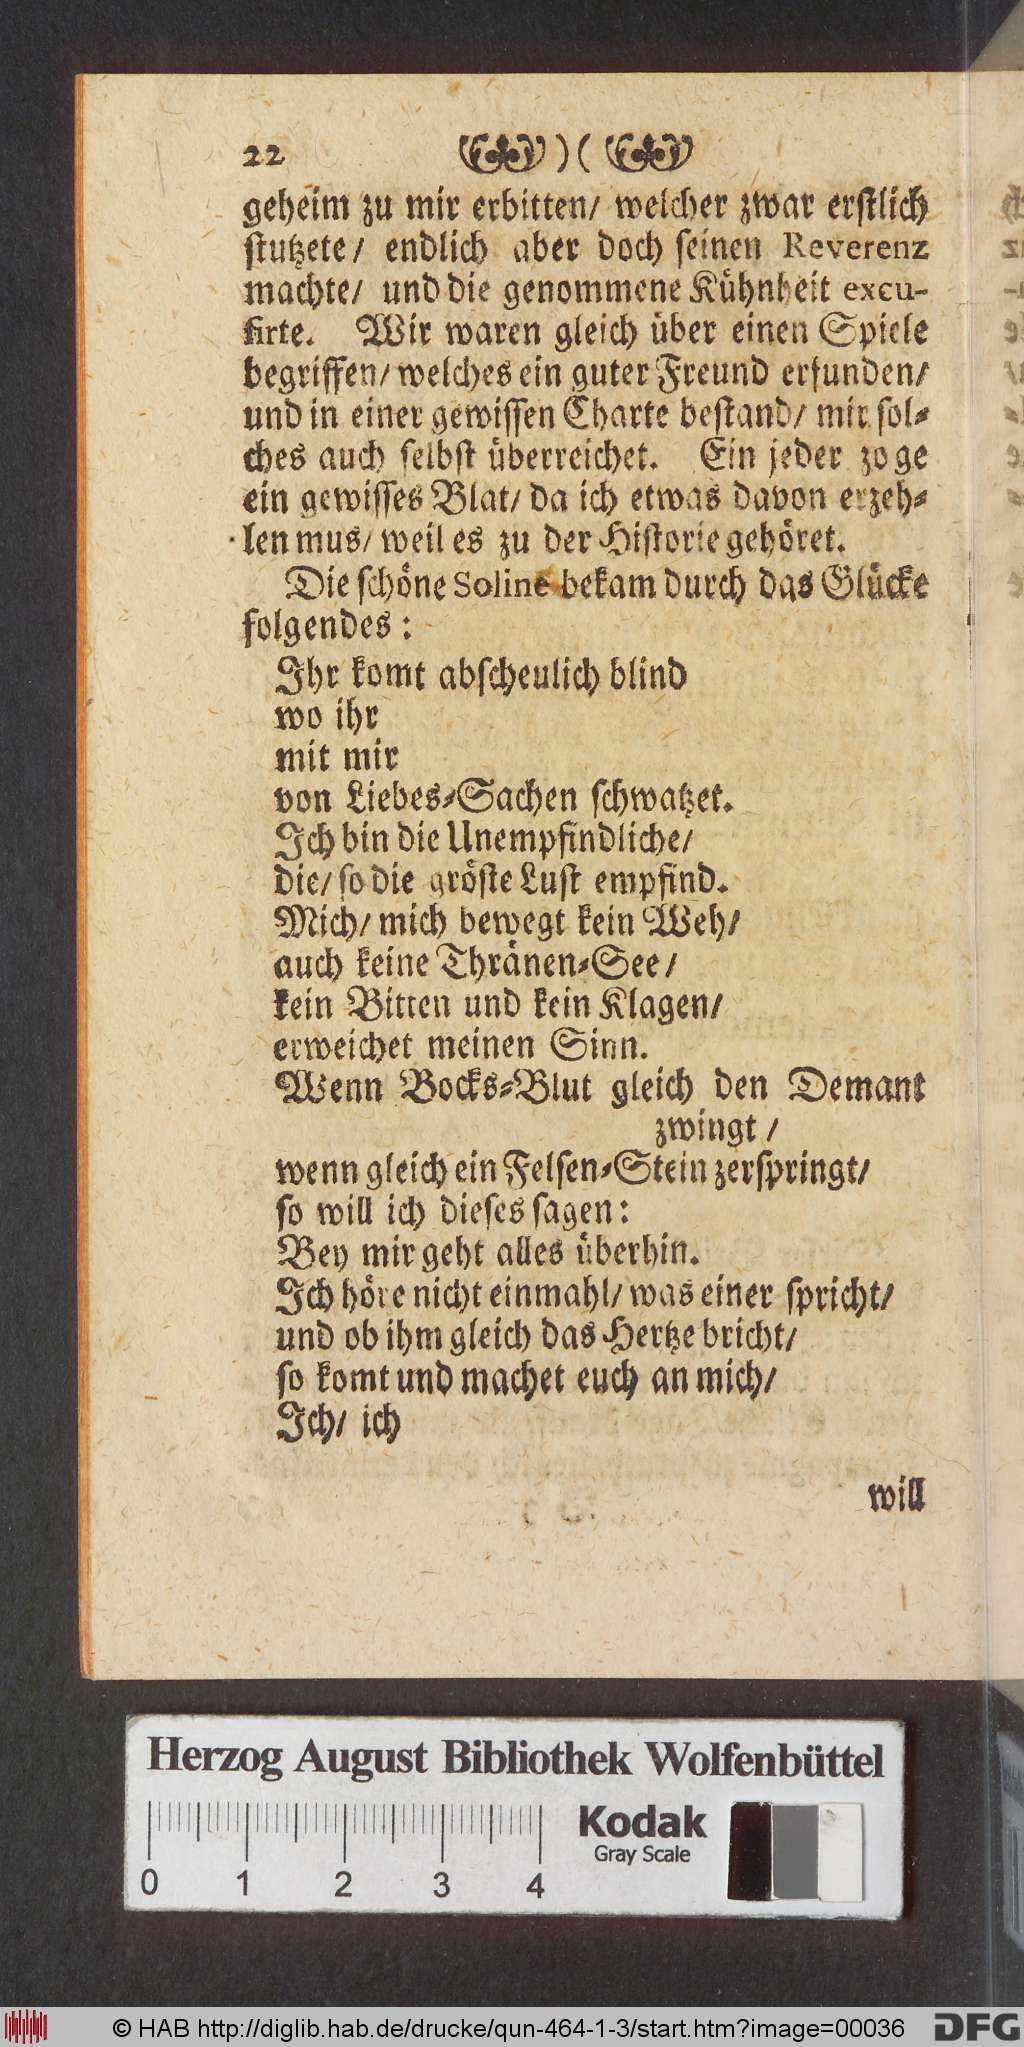 22 )(
geheim zu mir erbitten/ welcher zwar erſtlich
ſtutzete/ endlich aber doch ſeinen Reverenz
machte/ und die genommene Kühnheit excu-
ſirte. Wir waren gleich über einen Spiele
begriffen/ welches ein guter Freund erfunden/
und in einer gewiſſen Charte beſtand/ mir ſol⸗
ches auch ſelbſt überreichet. Ein jeder zoge
ein gewiſſes Blat/ da ich etwas davon erzeh⸗
len mus/ weil es zu der Hiſtorie gehöret.
Die ſchöne Soline bekam durch das Glücke
folgendes:
Ihr komt abſcheulich blind
wo ihr
mit mir
von Liebes⸗Sachen ſchwatzet.
Ich bin die Unempfindliche/
die/ ſo die gröſte Luſt empfind.
Mich/ mich bewegt kein Weh/
auch keine Thränen⸗See/
kein Bitten und kein Klagen/
erweichet meinen Sinn.
Wenn Bocks⸗Blut gleich den Demant
zwingt/
wenn gleich ein Felſen⸗Stein zerſpringt/
ſo will ich dieſes ſagen:
Bey mir geht alles überhin.
Ich höre nicht einmahl/ was einer ſpricht/
und ob ihm gleich das Hertze bricht/
ſo komt und machet euch an mich/
Ich/ ich
will
Herzog August Bibliothek Wolfenbüttel
Kodak
Gray Scale
0 1 2 3 4
© HAB http://diglib.hab.de/drucke/qun-464-1-3/start.htm?image=00036
DFG